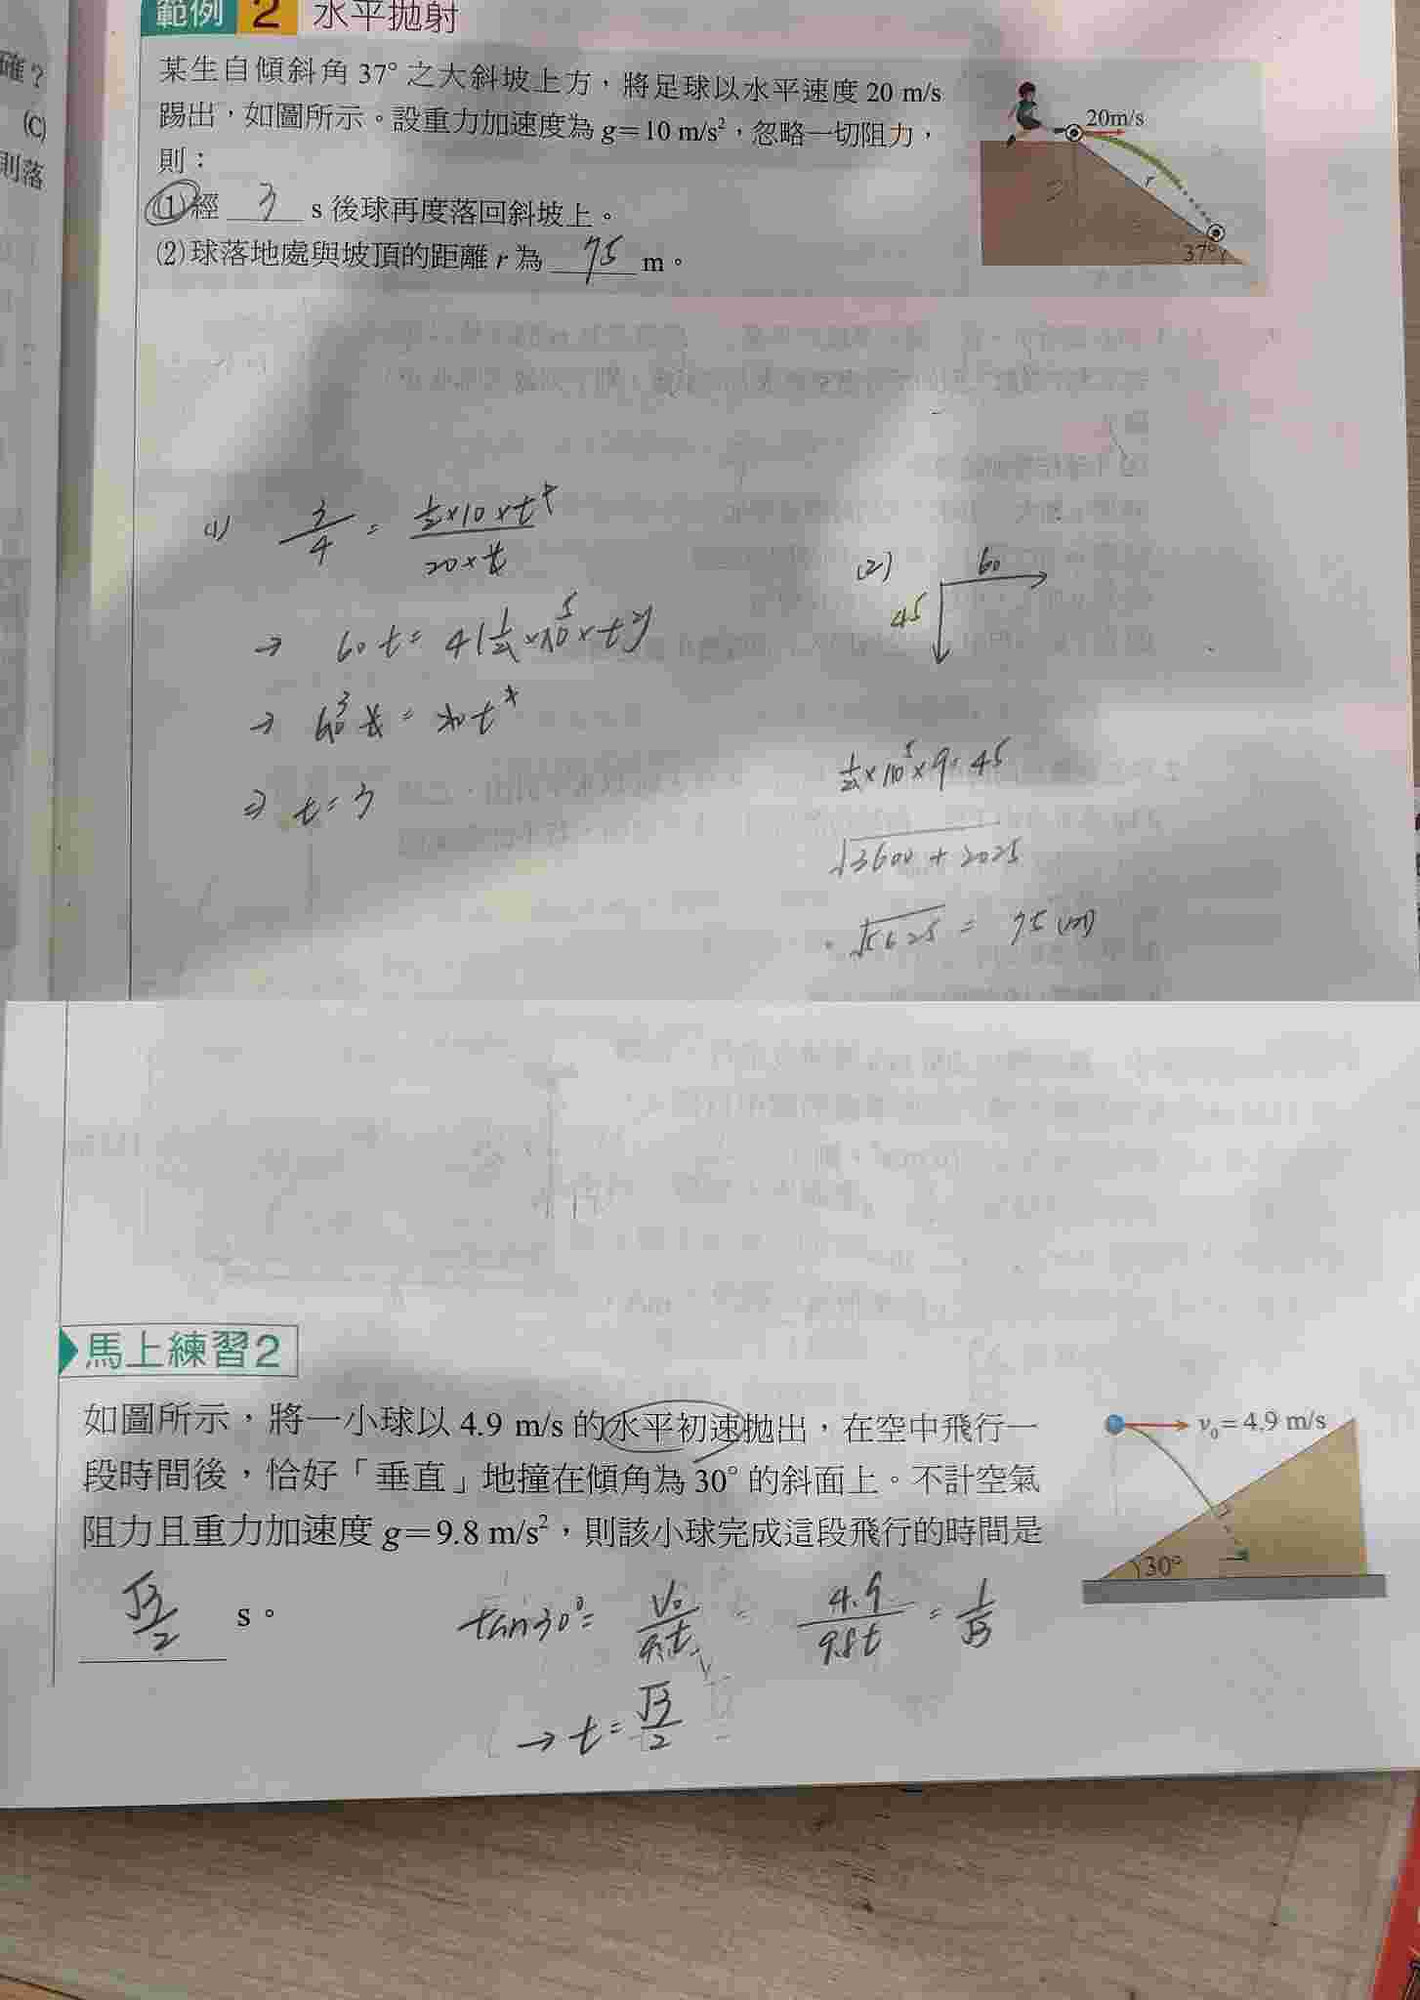 範例 2 水平拋射
確?
(C)
則落
某生自傾斜角 37° 之大斜坡上方,將足球以水平速度 20 m/s
踢出,如圖所示。設重力加速度為 g=10 m/s²,忽略一切阻力,
則:
(1)經 3 s 後球再度落回斜坡上。
(2)球落地處與坡頂的距離 r 為 75 m。
20m/s
r
37°
(1) 3/4 = (1/2×10×t²)/(20×t)
→ 60t = 4(1/2×10×t²) 5
→ 60t = 20t² 3
⇒ t=3
(2) 60
45
1/2×10×9=45 5
√3600+2025
√5625 = 75(m)
馬上練習2
如圖所示,將一小球以 4.9 m/s 的水平初速拋出,在空中飛行一
段時間後,恰好「垂直」地撞在傾角為 30° 的斜面上。不計空氣
阻力且重力加速度 g=9.8 m/s²,則該小球完成這段飛行的時間是
√3/2 s。
v₀=4.9 m/s
30°
tan30°= V₀/gt = 4.9/9.8t = 1/√3
→ t= √3/2